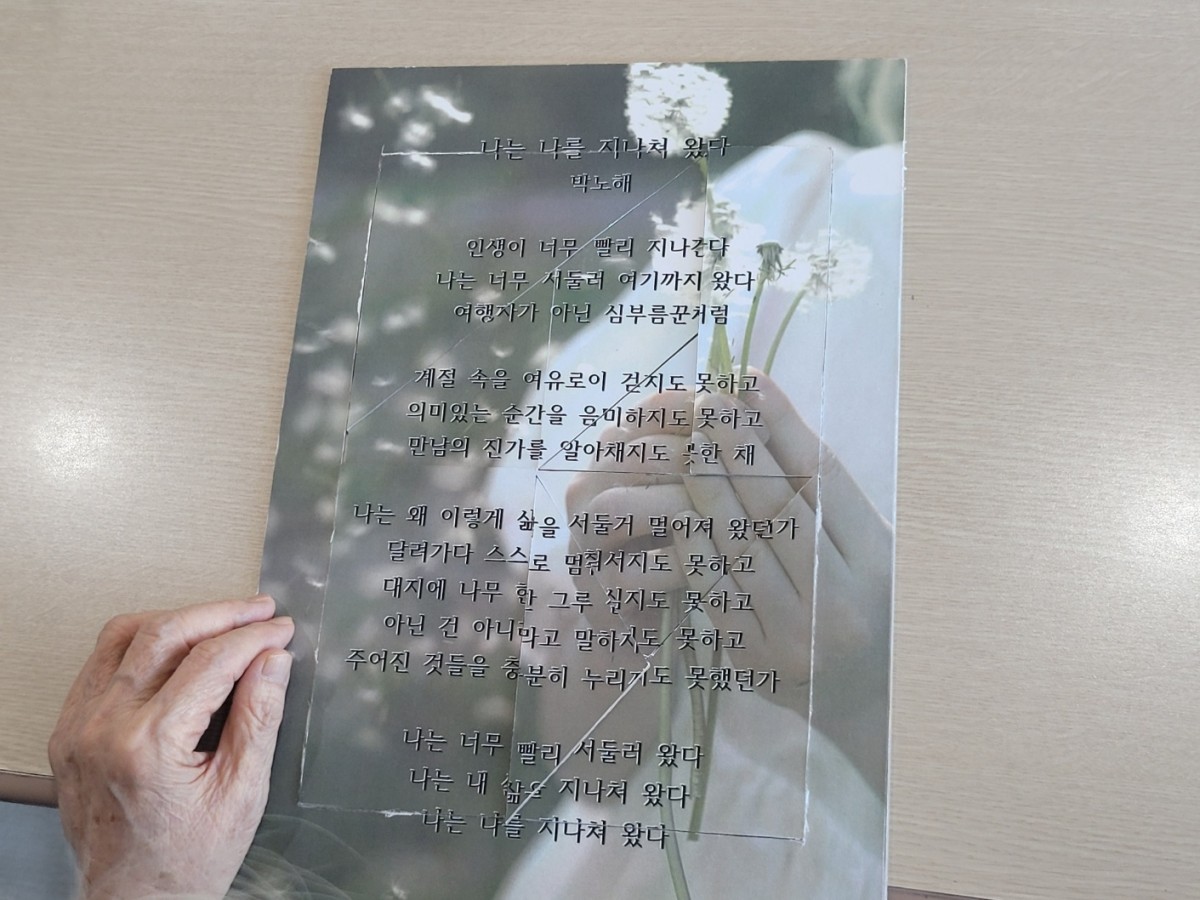 나는 나를 지나쳐 왔다
박노해
인생이 너무 빨리 지나간다
나는 너무 서둘러 여기까지 왔다
여행자가 아닌 심부름꾼처럼
계절 속을 여유로이 걷지도 못하고
의미있는 순간을 음미하지도 못하고
만남의 진가를 알아채지도 못한 채
나는 왜 이렇게 삶을 서둘거 멀어져 왔던가
달려가다 스스로 멈춰서지도 못하고
대지에 나무 한 그루 심지도 못하고
아닌 건 아니라고 말하지도 못하고
주어진 것들을 충분히 누리지도 못했던가
나는 너무 빨리 서둘러 왔다
나는 내 삶을 지나쳐 왔다
나는 나를 지나쳐 왔다